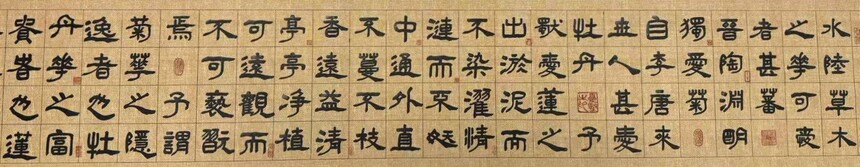 水陸草木
之華可愛
者甚蕃
晉陶淵明
獨愛菊
自李唐來
世人甚愛
牡丹予
獨愛蓮之
出淤泥而
不染濯清
漣而不妖
中通外直
不蔓不枝
香遠益清
亭亭淨植
可遠觀而
不可褻翫
焉予謂
菊華之隱
逸者也牡
丹華之富
貴者也蓮